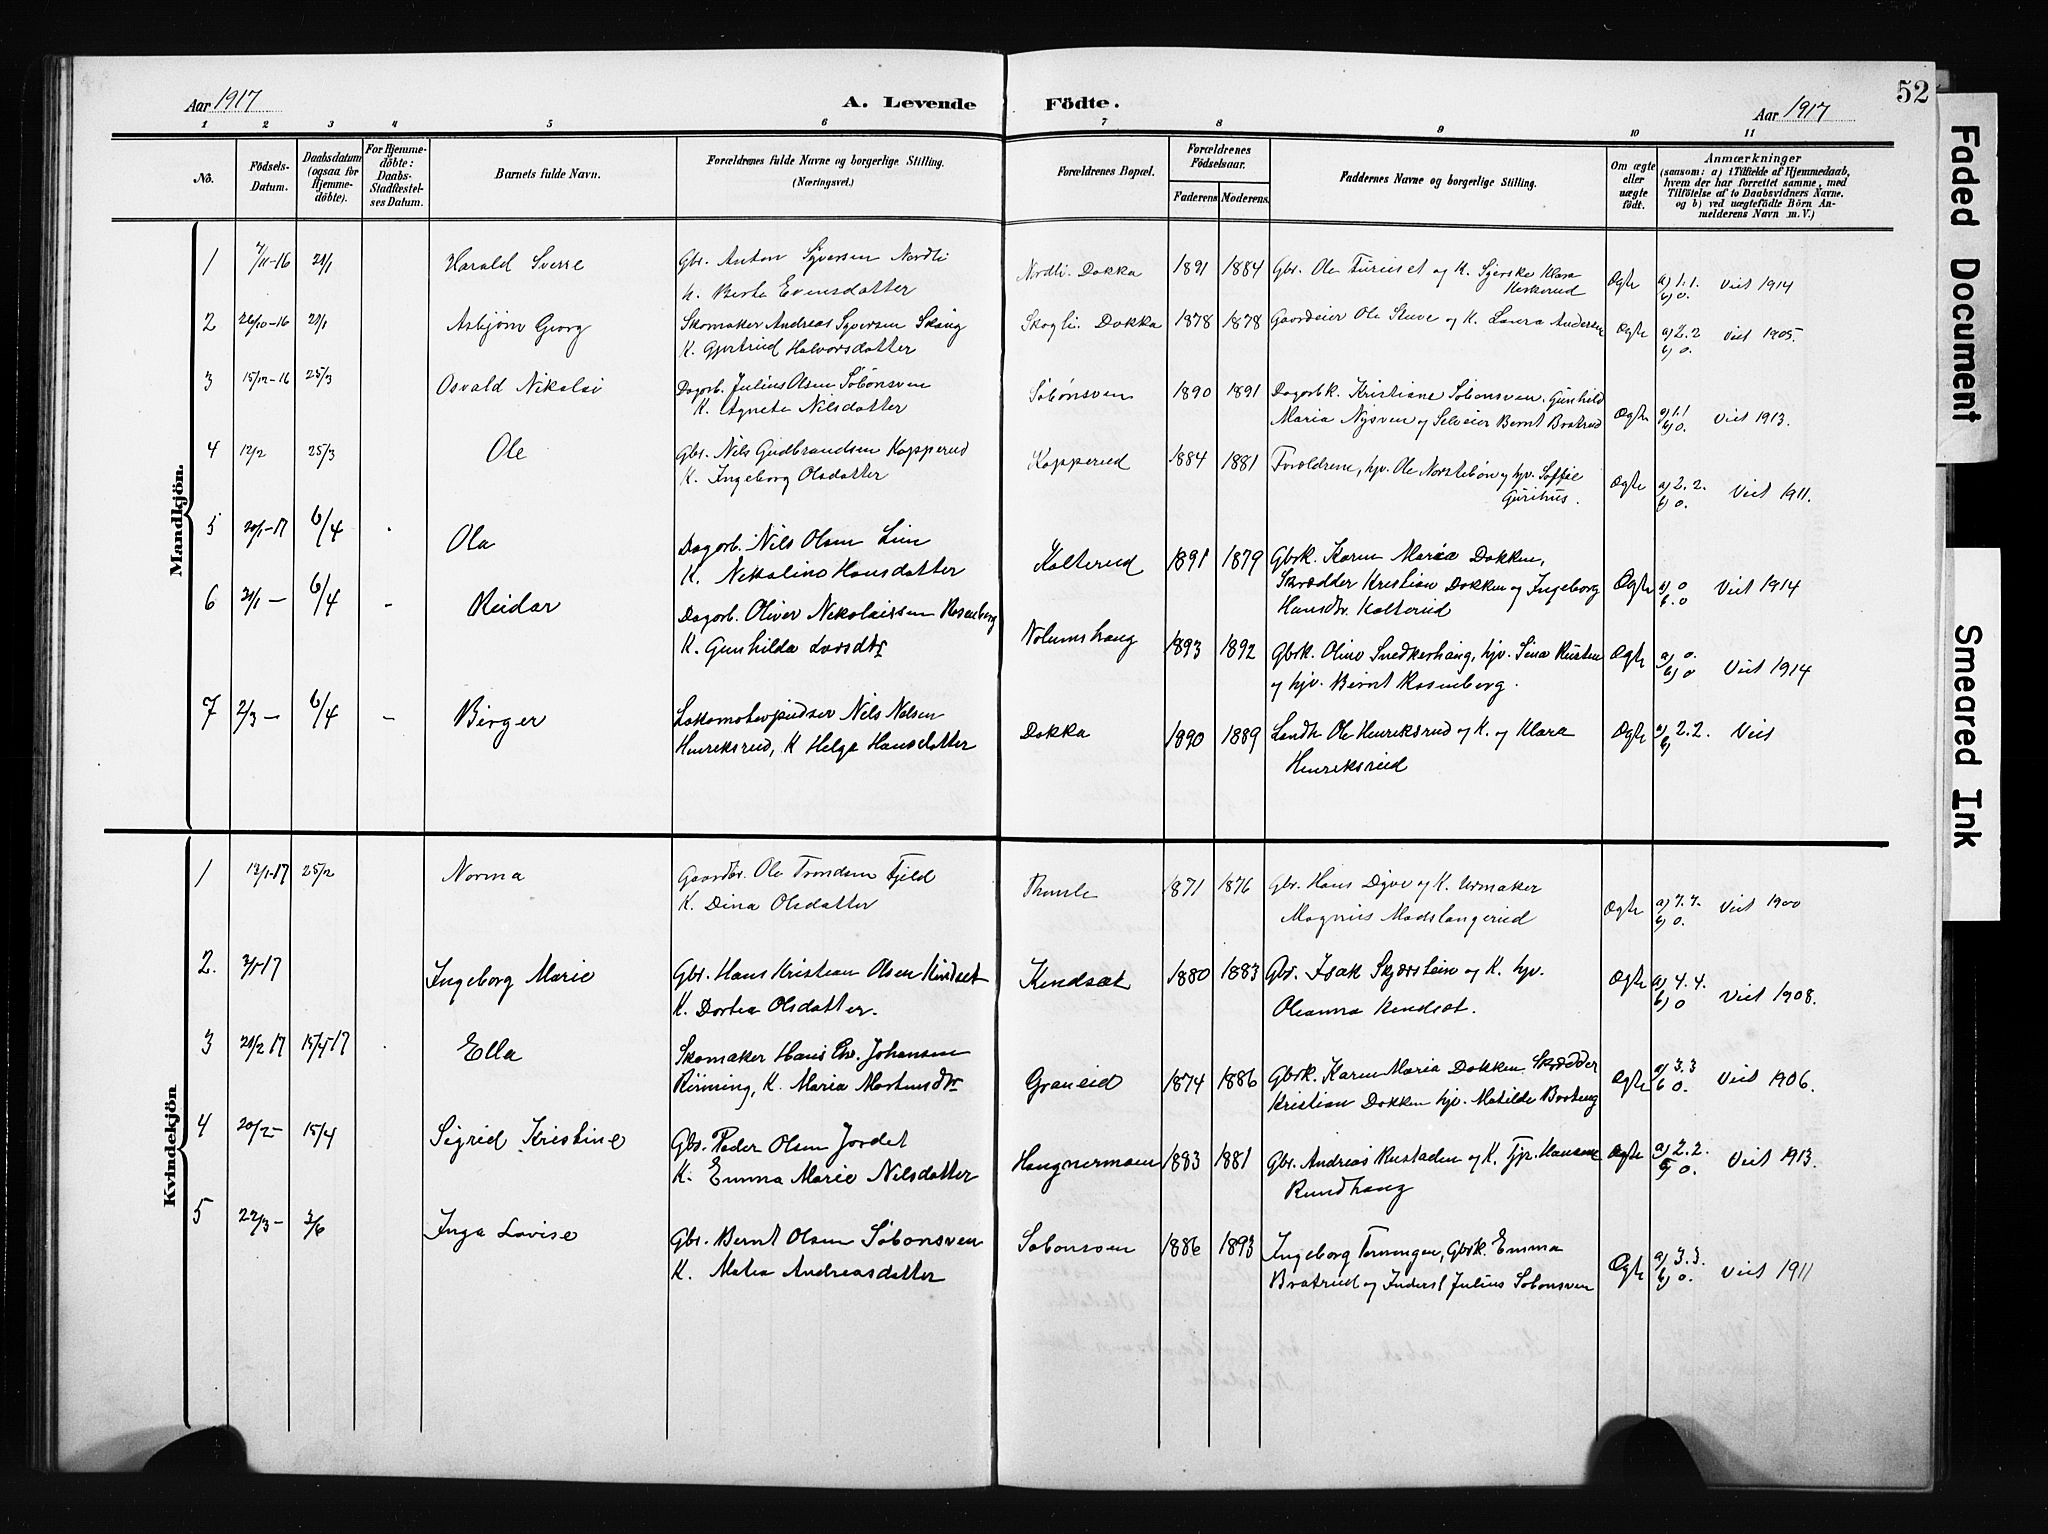 52
Aar 1917
A. Levende Födte.
Aar 1917
1 2 3 4 5 6 7 8 9 10 11
No.
Födsels-
Datum.
Daabsdatum
(ogsaa for
Hjemme-
döbte).
For Hjemme-
döbte:
Daabs-
Stadfæstel-
ses Datum.
Barnets fulde Navn.
Forældrenes fulde Navne og borgerlige Stilling.
(Næringsvei.)
Forældrenes Bopæl.
Forældrenes
Födselsaar.
Faderens Moderens
Faddernes Navne og borgerlige Stilling.
Om ægte
eller
uægte
födt.
Anmærkninger
(saasom: a) i Tilfælde af Hjemmedaab,
hvem der har forrettet samme, med
Tilföielse af to Daabsvidners Navne,
og b) ved uægtefödte Börn An-
melderens Navn m. V.)
Mandkjön.
1 7/11-16 21/1 Harald Sverre Gbr. Anton Syversen Nordli Nordli. Dokka 1891 1884 Gbr. Ole Furuset og K. Klara Ægte a) 1.1. Viet 1914
K. Berte Evensdatter b) o.
2 26/10-16 21/1 Asbjørn Georg Skomaker Andreas Syversen Skogli. Dokka 1878 1878 Gaardeier Ole Stuve og K. Laura Andersen Ægte a) 2.2 Viet 1905.
K. Gjertrud Halvorsdatter b) o.
3 15/12-16 25/3 Osvald Nikolai Dagarb. Julius Olsen Søbønsven Søbønsven 1890 1891 Dagarbk. Kristiane Søbonsven, Gunhild
K. Agnete Nilsdatter Maria Nysven og Selveier Bernt Bratrud Ægte a) 1.1 b) o. Viet 1913.
4 12/2 25/3 Ole Gbr. Nils Gudbrandsen Kopperud Kopperud 1884 1881 Forældrene, hjv. Ole og hjv. Soffie Ægte a) 2.2. Viet 1911.
K. Ingeborg Olsdatter Gurihus. b) o.
5 20/1-17 6/4 Ola Dagarb. Nils Olsen Lien Kolterud 1891 1879 Gbrk. Karen Maria Dokken,
K. Nikoline Hansdatter Skrædder Kristian Dokken og Ingeborg Ægte a) o Viet 1914
Hansdtr. Kolterud b. o
6 21/1 — 6/4 - Reidar Dagarb. Oliver Nikolaissen Rosenberg Nolumshaug 1893 1892 Gbrk. Oline Snedkerhaug, hjv. Sina Rusten Ægte a) o. Viet 1914
K. Gunhilda Larsdtr og hjv. Bernt Rosenberg. b) o
7 2/3 — 6/4 - Birger Lokomotivpudser Nils Nilsen Dokka 1890 1889 Landh. Ole Henriksrud og K. og Klara Ægte a) 2.2. Viet
Henriksrud, K Helga Hansdatter Henriksrud b)
Kvindekjön
1 12/1-17 25/2 Norma Gaardbr. Ole Trondsen Fjeld Thomle 1871 1876 Gbr. Hans Digve og K. Urmaker
K. Dina Olsdatter Magnus Madslangerud Ægte a) 7.7. Viet 1900
b) o.
2. 3/1-17 Ingeborg Marie Gbr. Hans Kristian Olsen Kindset Kindsæt 1880 1883 Gbr. Isak Skjærstein og K. hjv. Ægte a) 4.4. Viet 1908.
K. Dortea Olsdatter. Oleanna Kindsæt. b) o
3 21/2 17 15/4-17 Ella Skomaker Hans Chr. Johansen Graneid 1874 1886 Gbrk. Karen Maria Dokken. Skrædder Ægte a) 3.3 Viet 1906.
Rönning, K. Maria Martinsdtr Kristian Dokken hjv. Matilde Brateng b o.
4 20/2- 15/4 Sigrid Kristine Gbr. Peder Olsen Jordet Haugnermoen 1883 1881 Gbr. Andreas Rustaden og K. Tjp. Hansine Ægte a) 2.2. Viet 1913.
K. Emma Marie Nilsdatter Rundhaug b) o.
5 22/3- 3/6 Inga Lovise Gbr. Bernt Olsen Søbonsven Søbonsven 1886 1893 Ingeborg Tørningen, Gbrk. Emma Ægte a) 3.3. Viet 1911
K. Matea Andreasdatter Bratrud og Inderst Julius Søbonsven b) o.
Faded Document
Smeared Ink